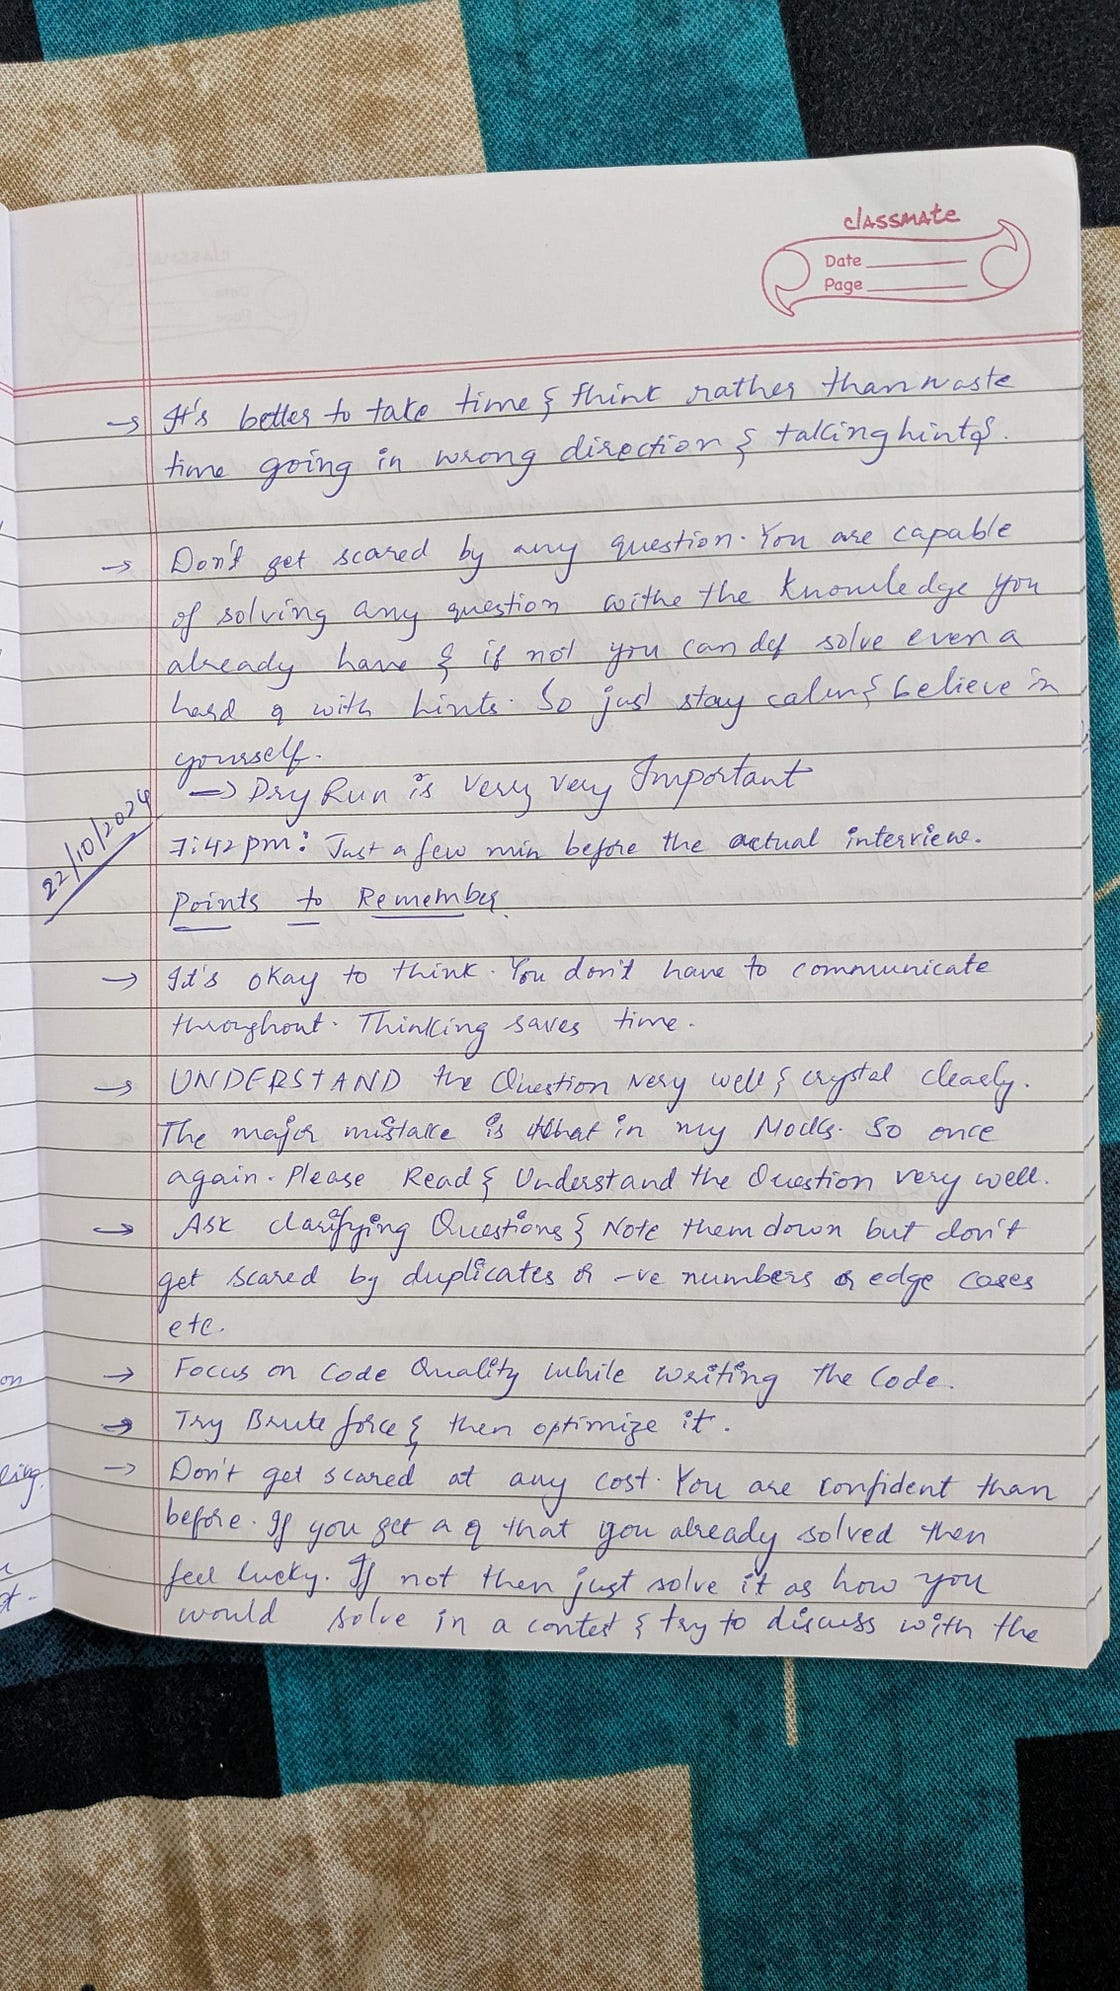 classmate
Date
Page
→ It's better to take time & think rather than waste
time going in wrong direction & taking hints.
→ Don't get scared by any question. You are capable
of solving any question withe the knowledge you
already have & if not you can def solve even a
hard q with hints. So just stay calm & believe in
yourself.
→ Dry Run is very very Important
22/10/2024
7:42 pm: Just a few min before the actual interview.
Points to Remember
→ It's okay to think. You don't have to communicate
throughout. Thinking saves time.
→ UNDERSTAND the Question very well & crystal clearly.
The major mistake is that in my Mocks. So once
again. Please Read & Understand the Question very well.
→ Ask clarifying Questions & Note them down but don't
get scared by duplicates or -ve numbers or edge cases
etc.
→ Focus on Code Quality while writing the Code.
→ Try Brute force & then optimize it.
→ Don't get scared at any cost. You are confident than
before. If you get a q that you already solved then
feel lucky. If not then just solve it as how you
would solve in a contest & try to discuss with the
on